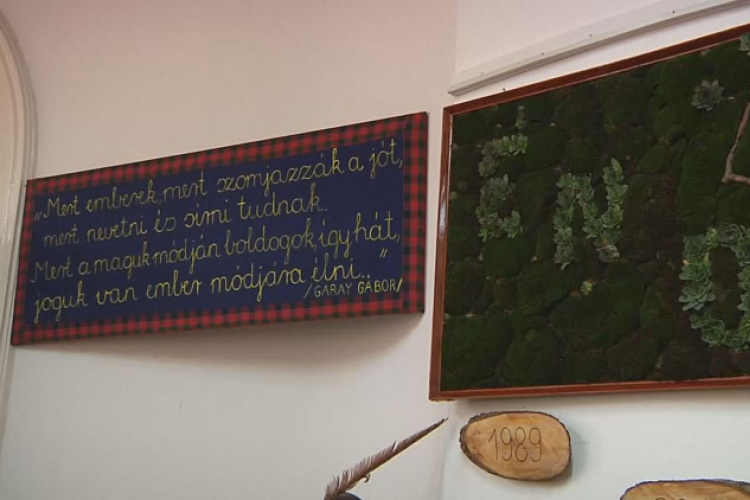 „Mert emberek, mert szomjazzák a jót,
mert nevetni és sírni tudnak.
Mert a maguk módján boldogok, így hát,
joguk van ember módjára élni.."
/GARAY GÁBOR/
1989